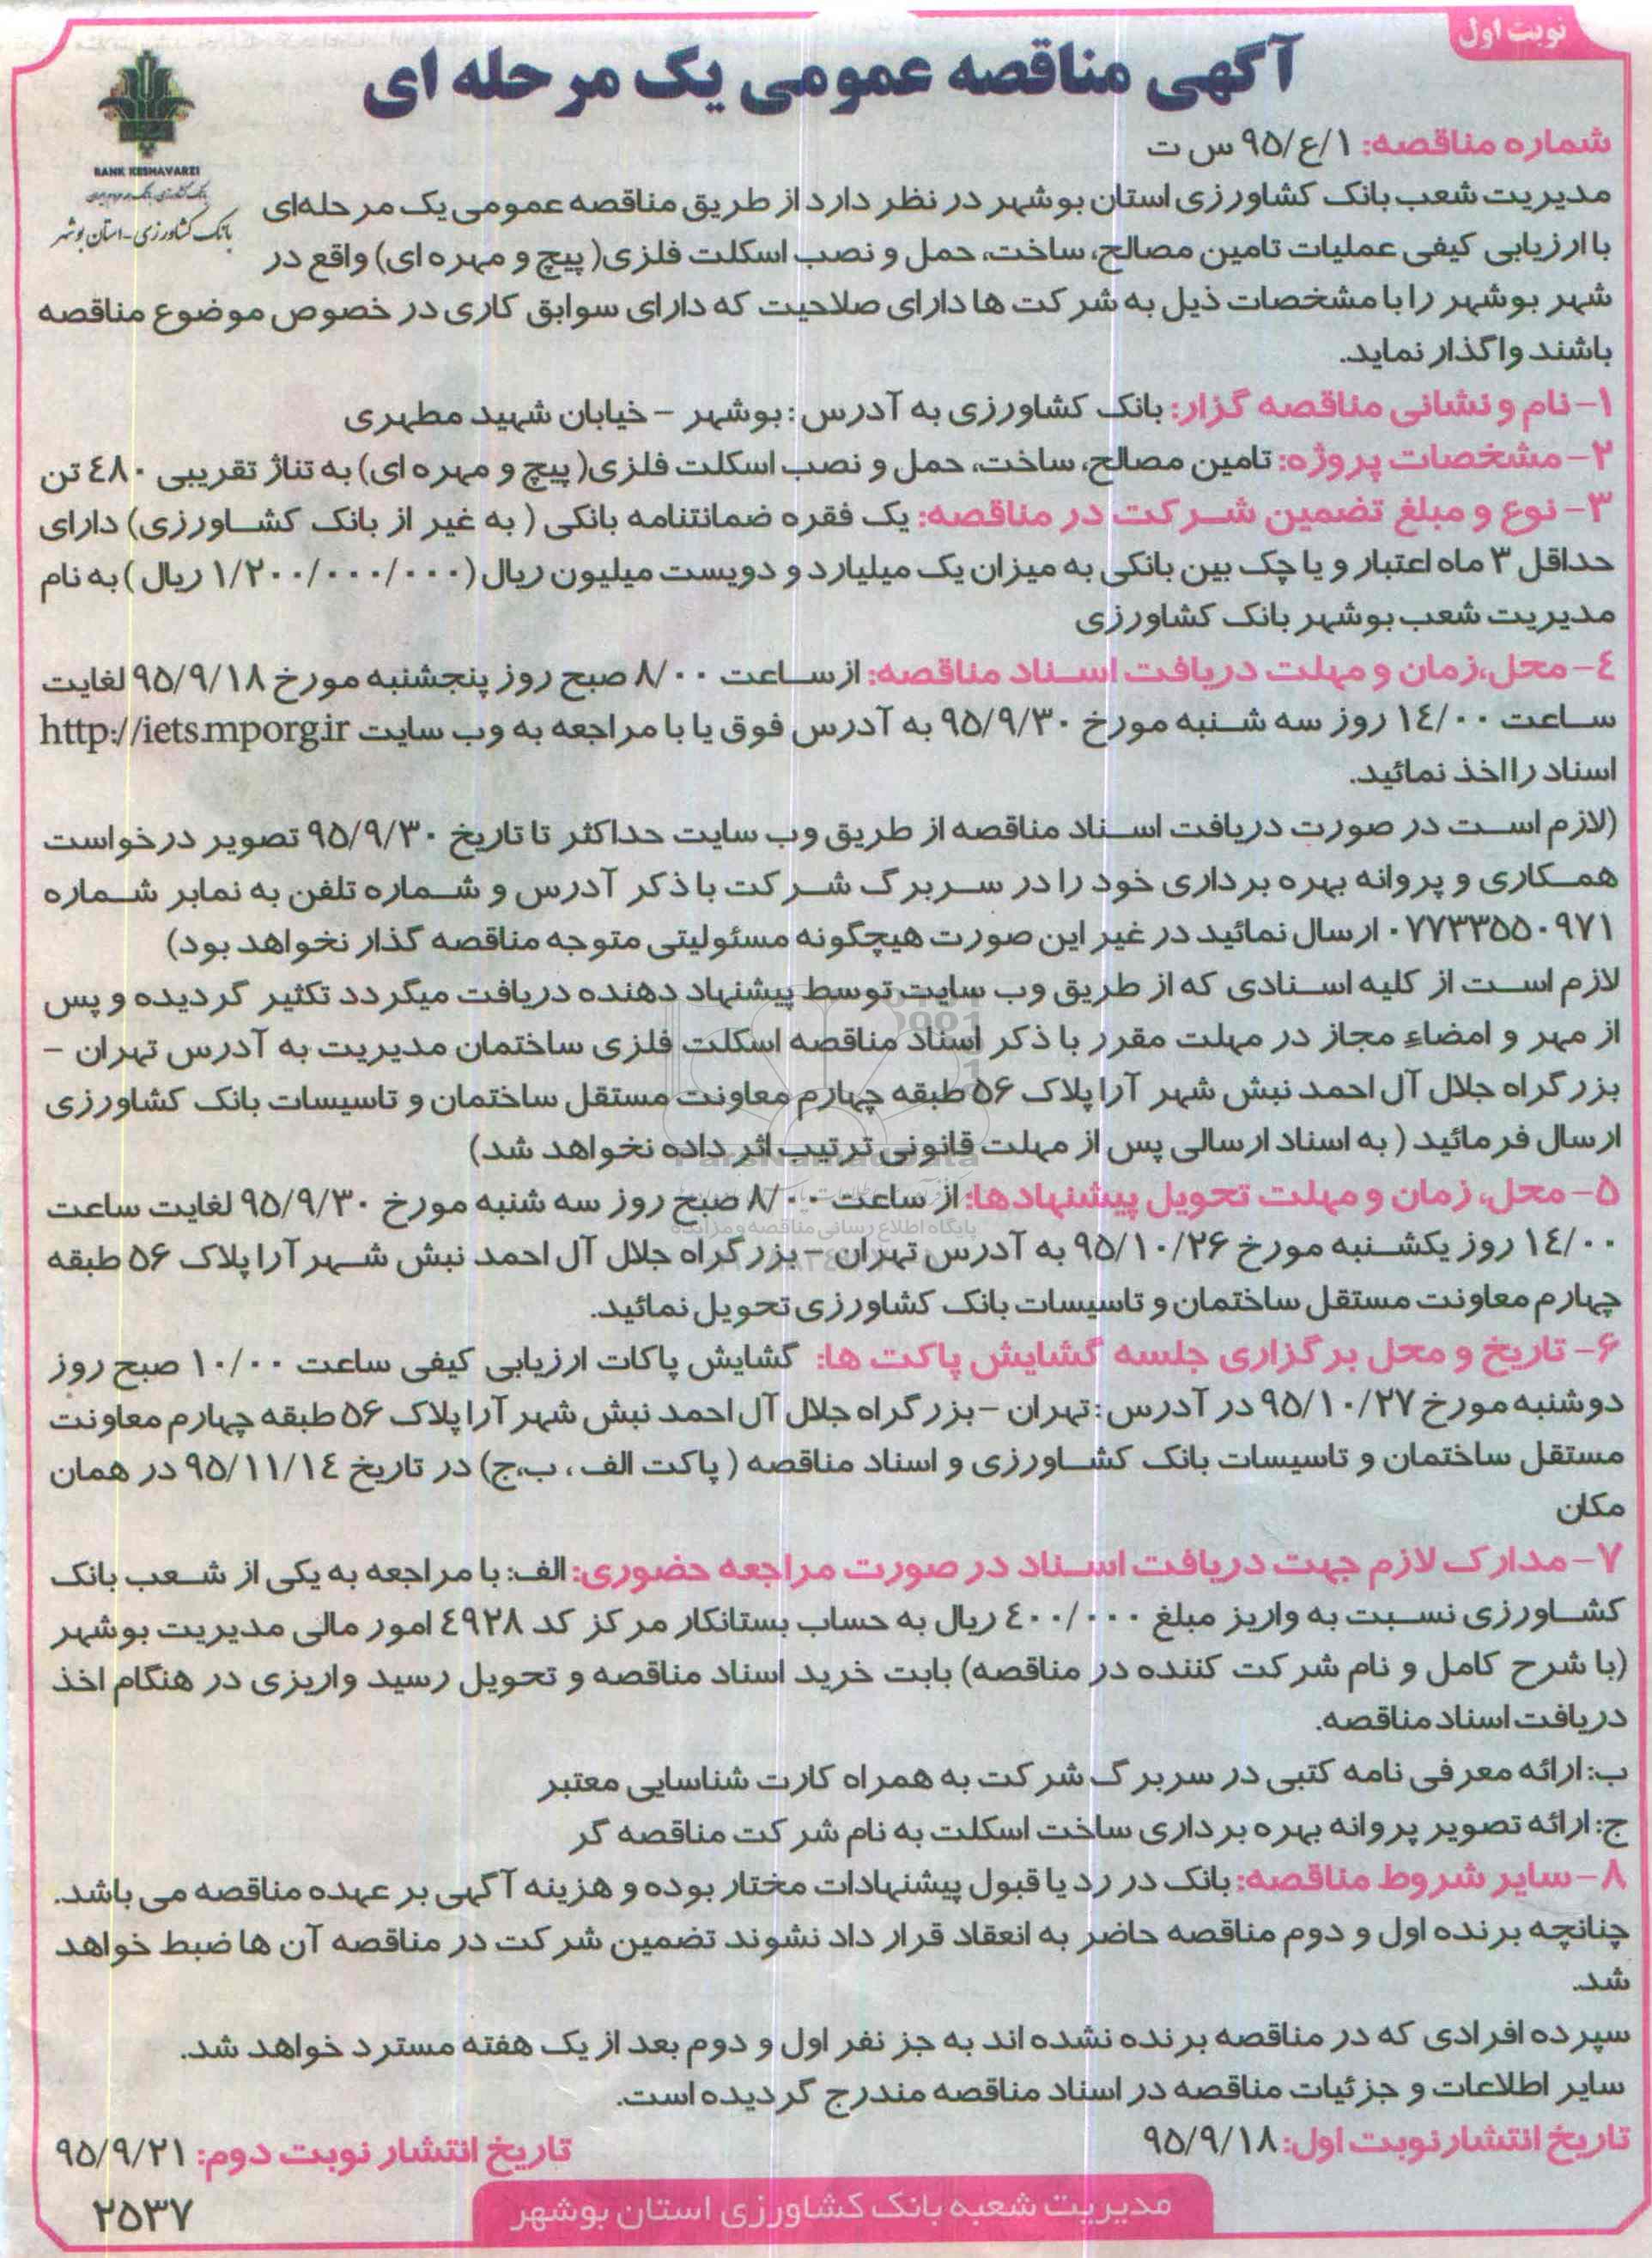 نوبت اول
آگهی مناقصه عمومی یک مرحله ای
BANK KESHAVARZI
بانک کشاورزی-استان بوشهر
شماره مناقصه: ۱/ع/۹۵ س ت
مدیریت شعب بانک کشاورزی استان بوشهر در نظر دارد از طریق مناقصه عمومی یک مرحله‌ای
با ارزیابی کیفی عملیات تامین مصالح، ساخت، حمل و نصب اسکلت فلزی( پیچ و مهره ای) واقع در
شهر بوشهر را با مشخصات ذیل به شرکت ها دارای صلاحیت که دارای سوابق کاری در خصوص موضوع مناقصه
باشند واگذار نماید.
۱- نام و نشانی مناقصه گزار: بانک کشاورزی به آدرس : بوشهر - خیابان شهید مطهری
۲- مشخصات پروژه: تامین مصالح، ساخت، حمل و نصب اسکلت فلزی( پیچ و مهره ای) به تناژ تقریبی ۴۸۰ تن
۳- نوع و مبلغ تضمین شرکت در مناقصه: یک فقره ضمانتنامه بانکی ( به غیر از بانک کشاورزی) دارای
حداقل ۳ ماه اعتبار و یا چک بین بانکی به میزان یک میلیارد و دویست میلیون ریال (۱/۲۰۰/۰۰۰/۰۰۰ ریال ) به نام
مدیریت شعب بوشهر بانک کشاورزی
۴- محل،زمان و مهلت دریافت اسناد مناقصه: از ساعت ۸/۰۰ صبح روز پنجشنبه مورخ ۹۵/۹/۱۸ لغایت
ساعت ۱۴/۰۰ روز سه شنبه مورخ ۹۵/۹/۳۰ به آدرس فوق یا با مراجعه به وب سایت http://iets.mporg.ir
اسناد را اخذ نمائید.
(لازم است در صورت دریافت اسناد مناقصه از طریق وب سایت حداکثر تا تاریخ ۹۵/۹/۳۰ تصویر درخواست
همکاری و پروانه بهره برداری خود را در سربرگ شرکت با ذکر آدرس و شماره تلفن به نمابر شماره
۰۷۷۳۳۵۵۰۹۷۱ ارسال نمائید در غیر این صورت هیچگونه مسئولیتی متوجه مناقصه گذار نخواهد بود)
لازم است از کلیه اسنادی که از طریق وب سایت توسط پیشنهاد دهنده دریافت میگردد تکثیر گردیده و پس
از مهر و امضاء مجاز در مهلت مقرر با ذکر اسناد مناقصه اسکلت فلزی ساختمان مدیریت به آدرس تهران -
بزرگراه جلال آل احمد نبش شهر آرا پلاک ۵۶ طبقه چهارم معاونت مستقل ساختمان و تاسیسات بانک کشاورزی
ارسال فرمائید ( به اسناد ارسالی پس از مهلت قانونی ترتیب اثر داده نخواهد شد)
پایگاه اطلاع رسانی مناقصه و مزایده
۵- محل، زمان و مهلت تحویل پیشنهادها: از ساعت ۸/۰۰ صبح روز سه شنبه مورخ ۹۵/۹/۳۰ لغایت ساعت
۱۴/۰۰ روز یکشنبه مورخ ۹۵/۱۰/۲۶ به آدرس تهران - بزرگراه جلال آل احمد نبش شهر آرا پلاک ۵۶ طبقه
چهارم معاونت مستقل ساختمان و تاسیسات بانک کشاورزی تحویل نمائید.
۶- تاریخ و محل برگزاری جلسه گشایش پاکت ها: گشایش پاکات ارزیابی کیفی ساعت ۱۰/۰۰ صبح روز
دوشنبه مورخ ۹۵/۱۰/۲۷ در آدرس : تهران - بزرگراه جلال آل احمد نبش شهر آرا پلاک ۵۶ طبقه چهارم معاونت
مستقل ساختمان و تاسیسات بانک کشاورزی و اسناد مناقصه ( پاکت الف ، ب،ج) در تاریخ ۹۵/۱۱/۱۴ در همان
مکان
۷- مدارک لازم جهت دریافت اسناد در صورت مراجعه حضوری: الف: با مراجعه به یکی از شعب بانک
کشاورزی نسبت به واریز مبلغ ۴۰۰/۰۰۰ ریال به حساب بستانکار مرکز کد ۴۹۲۸ امور مالی مدیریت بوشهر
(با شرح کامل و نام شرکت کننده در مناقصه) بابت خرید اسناد مناقصه و تحویل رسید واریزی در هنگام اخذ
دریافت اسناد مناقصه.
ب: ارائه معرفی نامه کتبی در سربرگ شرکت به همراه کارت شناسایی معتبر
ج: ارائه تصویر پروانه بهره برداری ساخت اسکلت به نام شرکت مناقصه گر
۸- سایر شروط مناقصه: بانک در رد یا قبول پیشنهادات مختار بوده و هزینه آگهی بر عهده مناقصه می باشد.
چنانچه برنده اول و دوم مناقصه حاضر به انعقاد قرار داد نشوند تضمین شرکت در مناقصه آن ها ضبط خواهد
شد.
سپرده افرادی که در مناقصه برنده نشده اند به جز نفر اول و دوم بعد از یک هفته مسترد خواهد شد.
سایر اطلاعات و جزئیات مناقصه در اسناد مناقصه مندرج گردیده است.
تاریخ انتشار نوبت اول: ۹۵/۹/۱۸
تاریخ انتشار نوبت دوم: ۹۵/۹/۲۱
مدیریت شعبه بانک کشاورزی استان بوشهر
۲۵۳۷